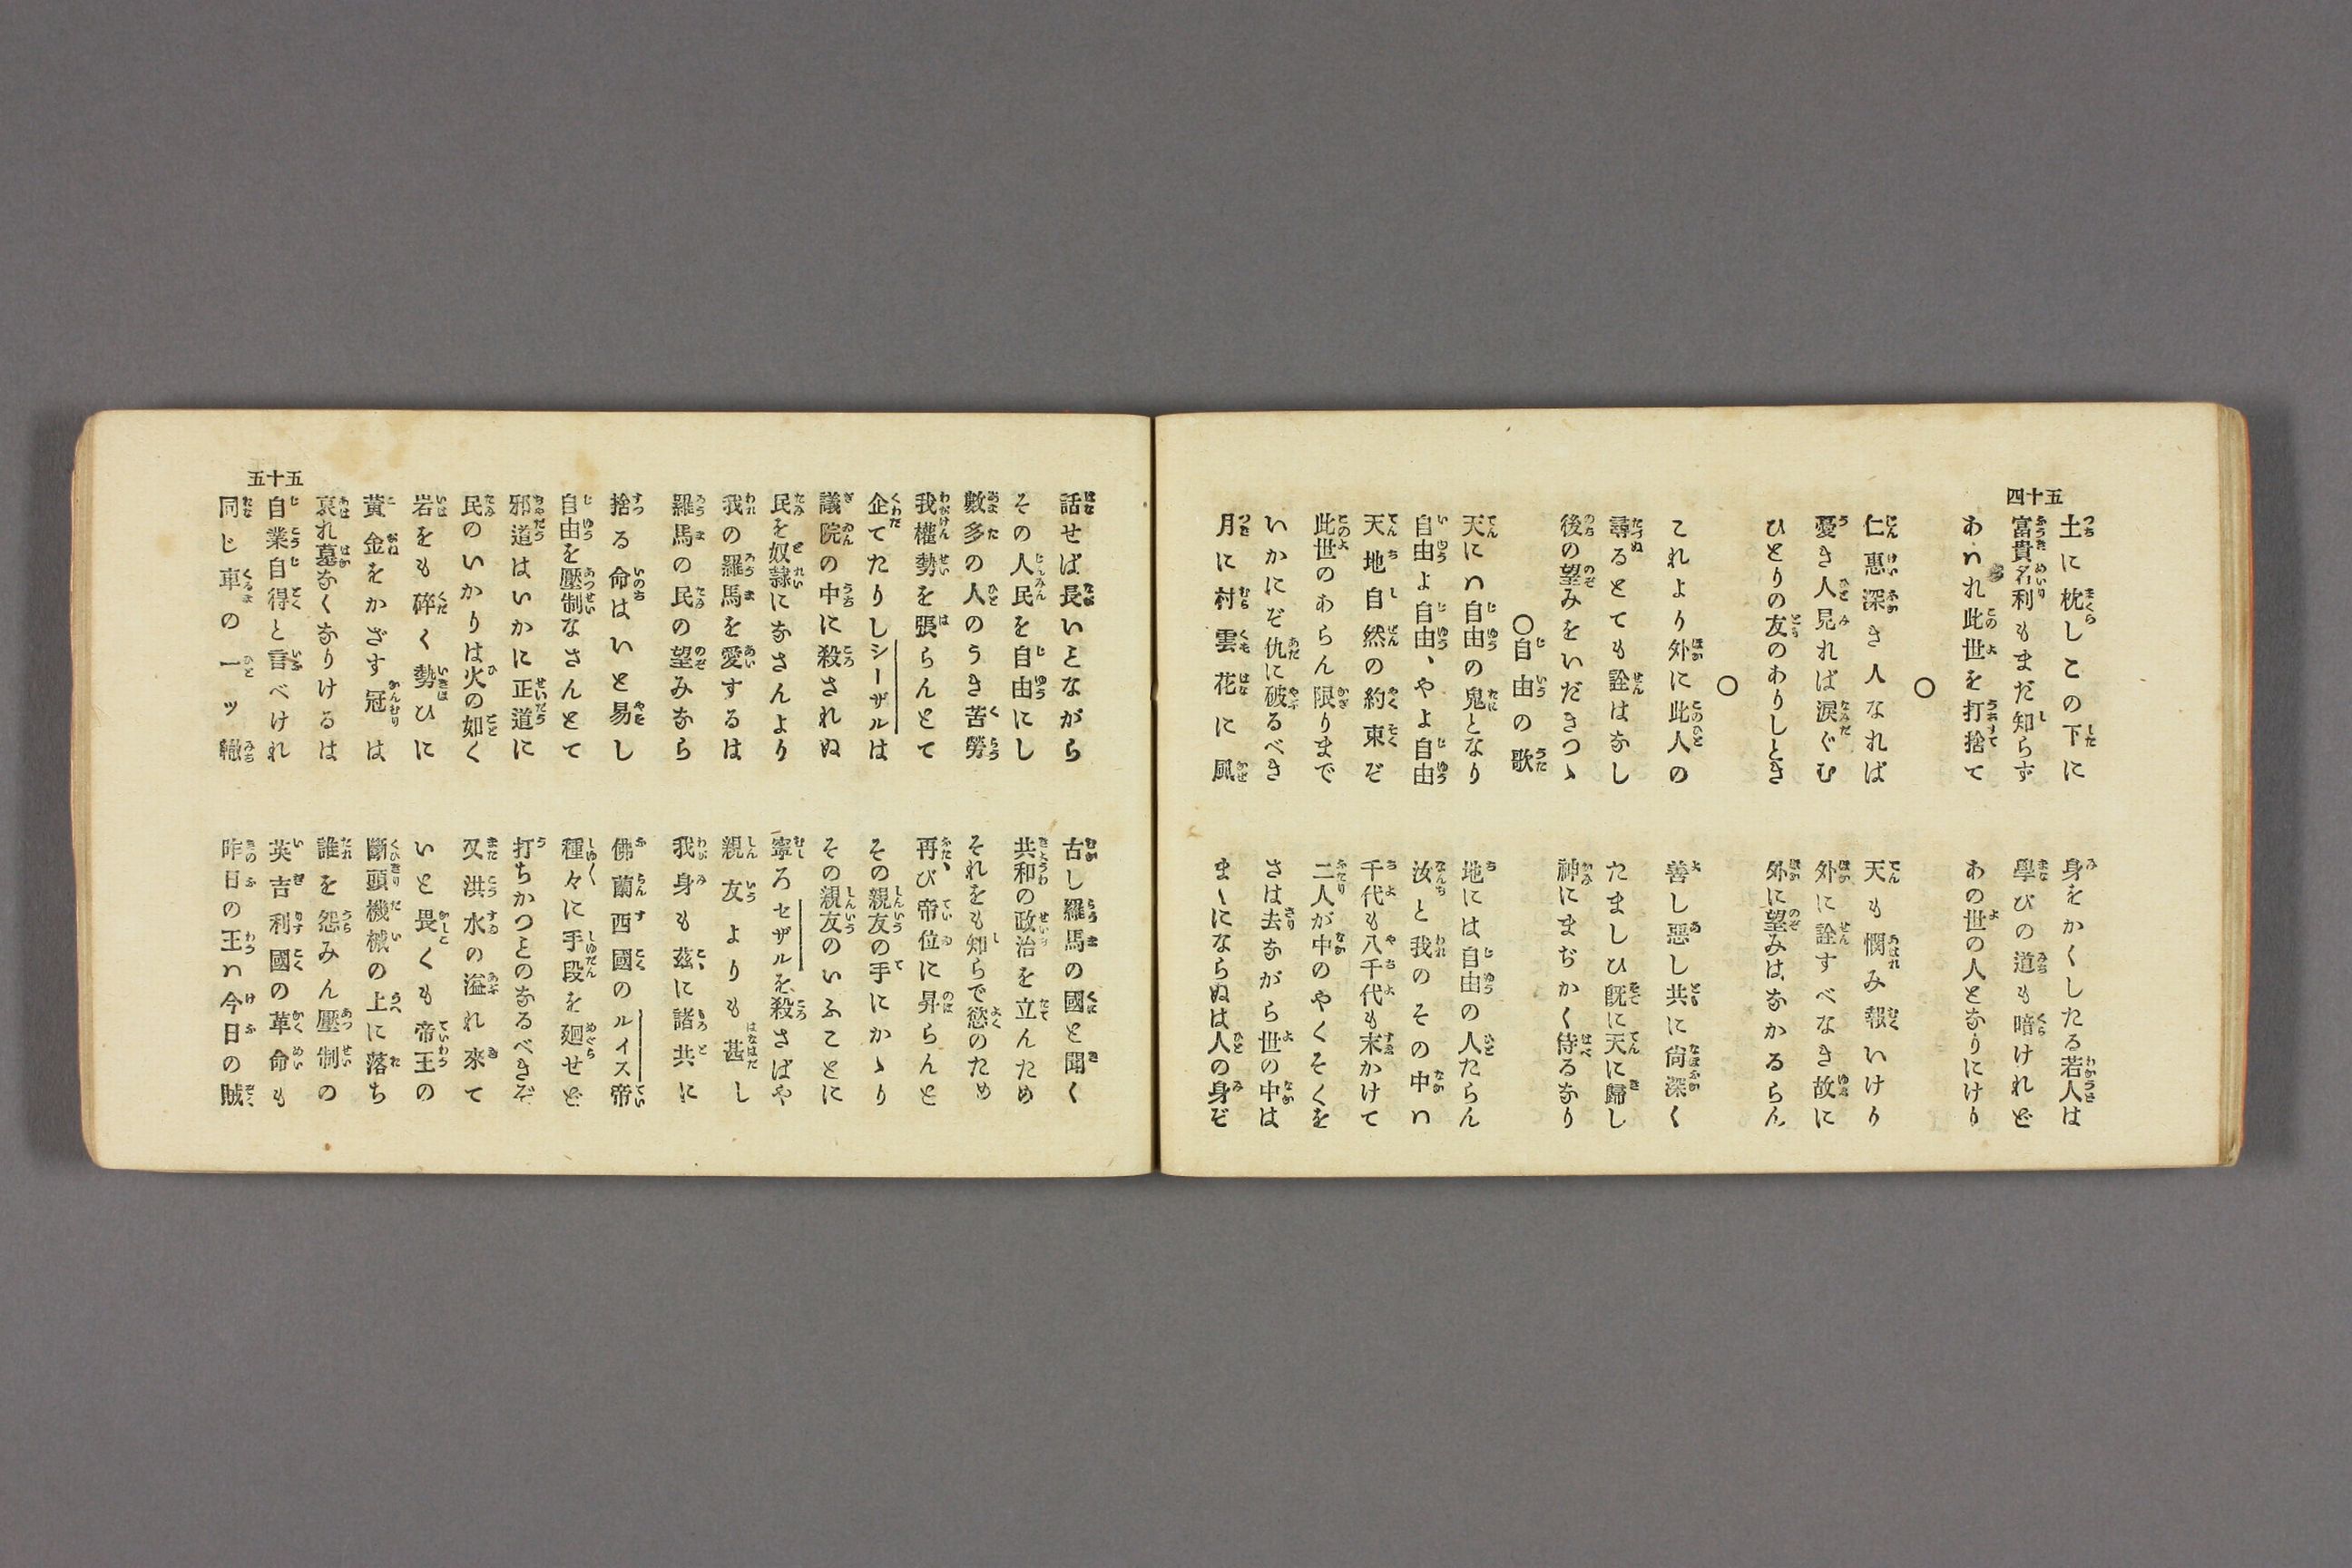 五十四
土に枕しこの下に　身をかくしたる若人は
富貴名利もまだ知らず　學びの道も暗けれど
あハれ此世を打捨て　あの世の人となりにけり
○
仁惠深き人なれば　天も憫み報いけり
憂き人見れば涙ぐむ　外に詮すべなき故に
ひとりの友のありしとき　外に望みはなかるらん
○
これより外に此人の　善し惡し共に尚深く
尋るとても詮はなし　たましひ既に天に歸し
後の望みをいだきつゝ　神にまぢかく侍るなり
○自由の歌
天にハ自由の鬼となり　地には自由の人たらん
自由よ自由、やよ自由　汝と我のその中ハ
天地自然の約束ぞ　千代も八千代も末かけて
此世のあらん限りまで　二人が中のやくそくを
いかにぞ仇に破るべき　さは去ながら世の中は
月に村雲花に風　まゝにならぬは人の身ぞ
五十五
話せば長いことながら　古し羅馬の國と聞く
その人民を自由にし　共和の政治を立んため
數多の人のうき苦勞　それをも知らで慾のため
我權勢を張らんとて　再び帝位に昇らんと
企てたりしシーザルは　その親友の手にかゝり
議院の中に殺されぬ　その親友のいふことに
民を奴隷になさんより　寧ろセザルを殺さばや
我の羅馬を愛するは　親友よりも甚し
羅馬の民の望みなら　我身も茲に諸共に
捨る命はいと易し　佛蘭西國のルイス帝
自由を壓制なさんとて　種々に手段を廻せど
邪道はいかに正道に　打ちかつことのなるべきぞ
民のいかりは火の如く　又洪水の溢れ來て
岩をも碎く勢ひに　いと畏くも帝王の
黄金をかざす冠は　斷頭機械の上に落ち
哀れ墓なくなりけるは　誰を怨みん壓制の
自業自得と言べけれ　英吉利國の革命も
同じ車の一ッ轍　昨日の王ハ今日の賊